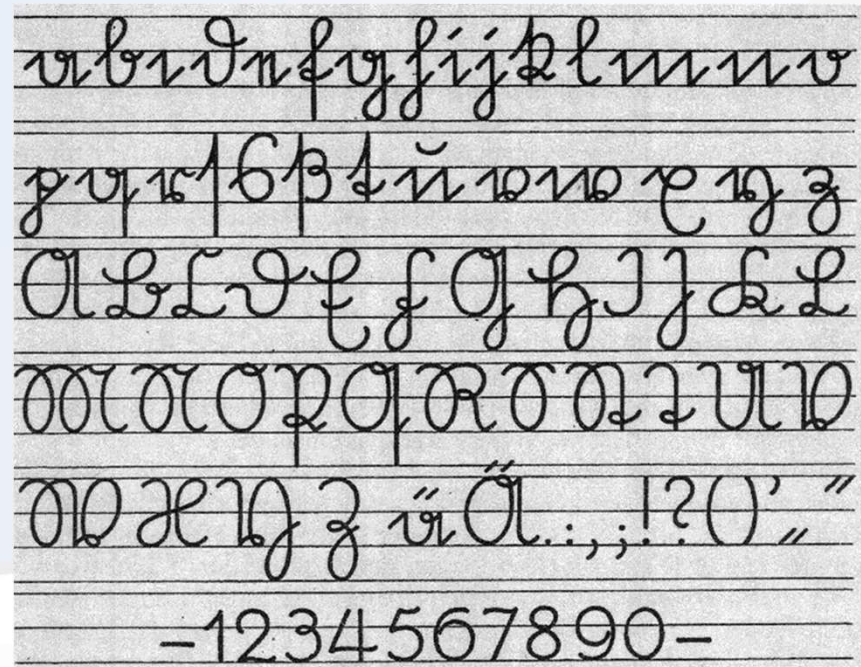 a b c d e f g h i j k l m n o
p q r ſ s ß t u v w x y z
A B C D E F G H I J K L
M N O P Q R S St T U V
W X Y Z ä Ä . : , ; ! ? ( ) ’ „ “
-1234567890-